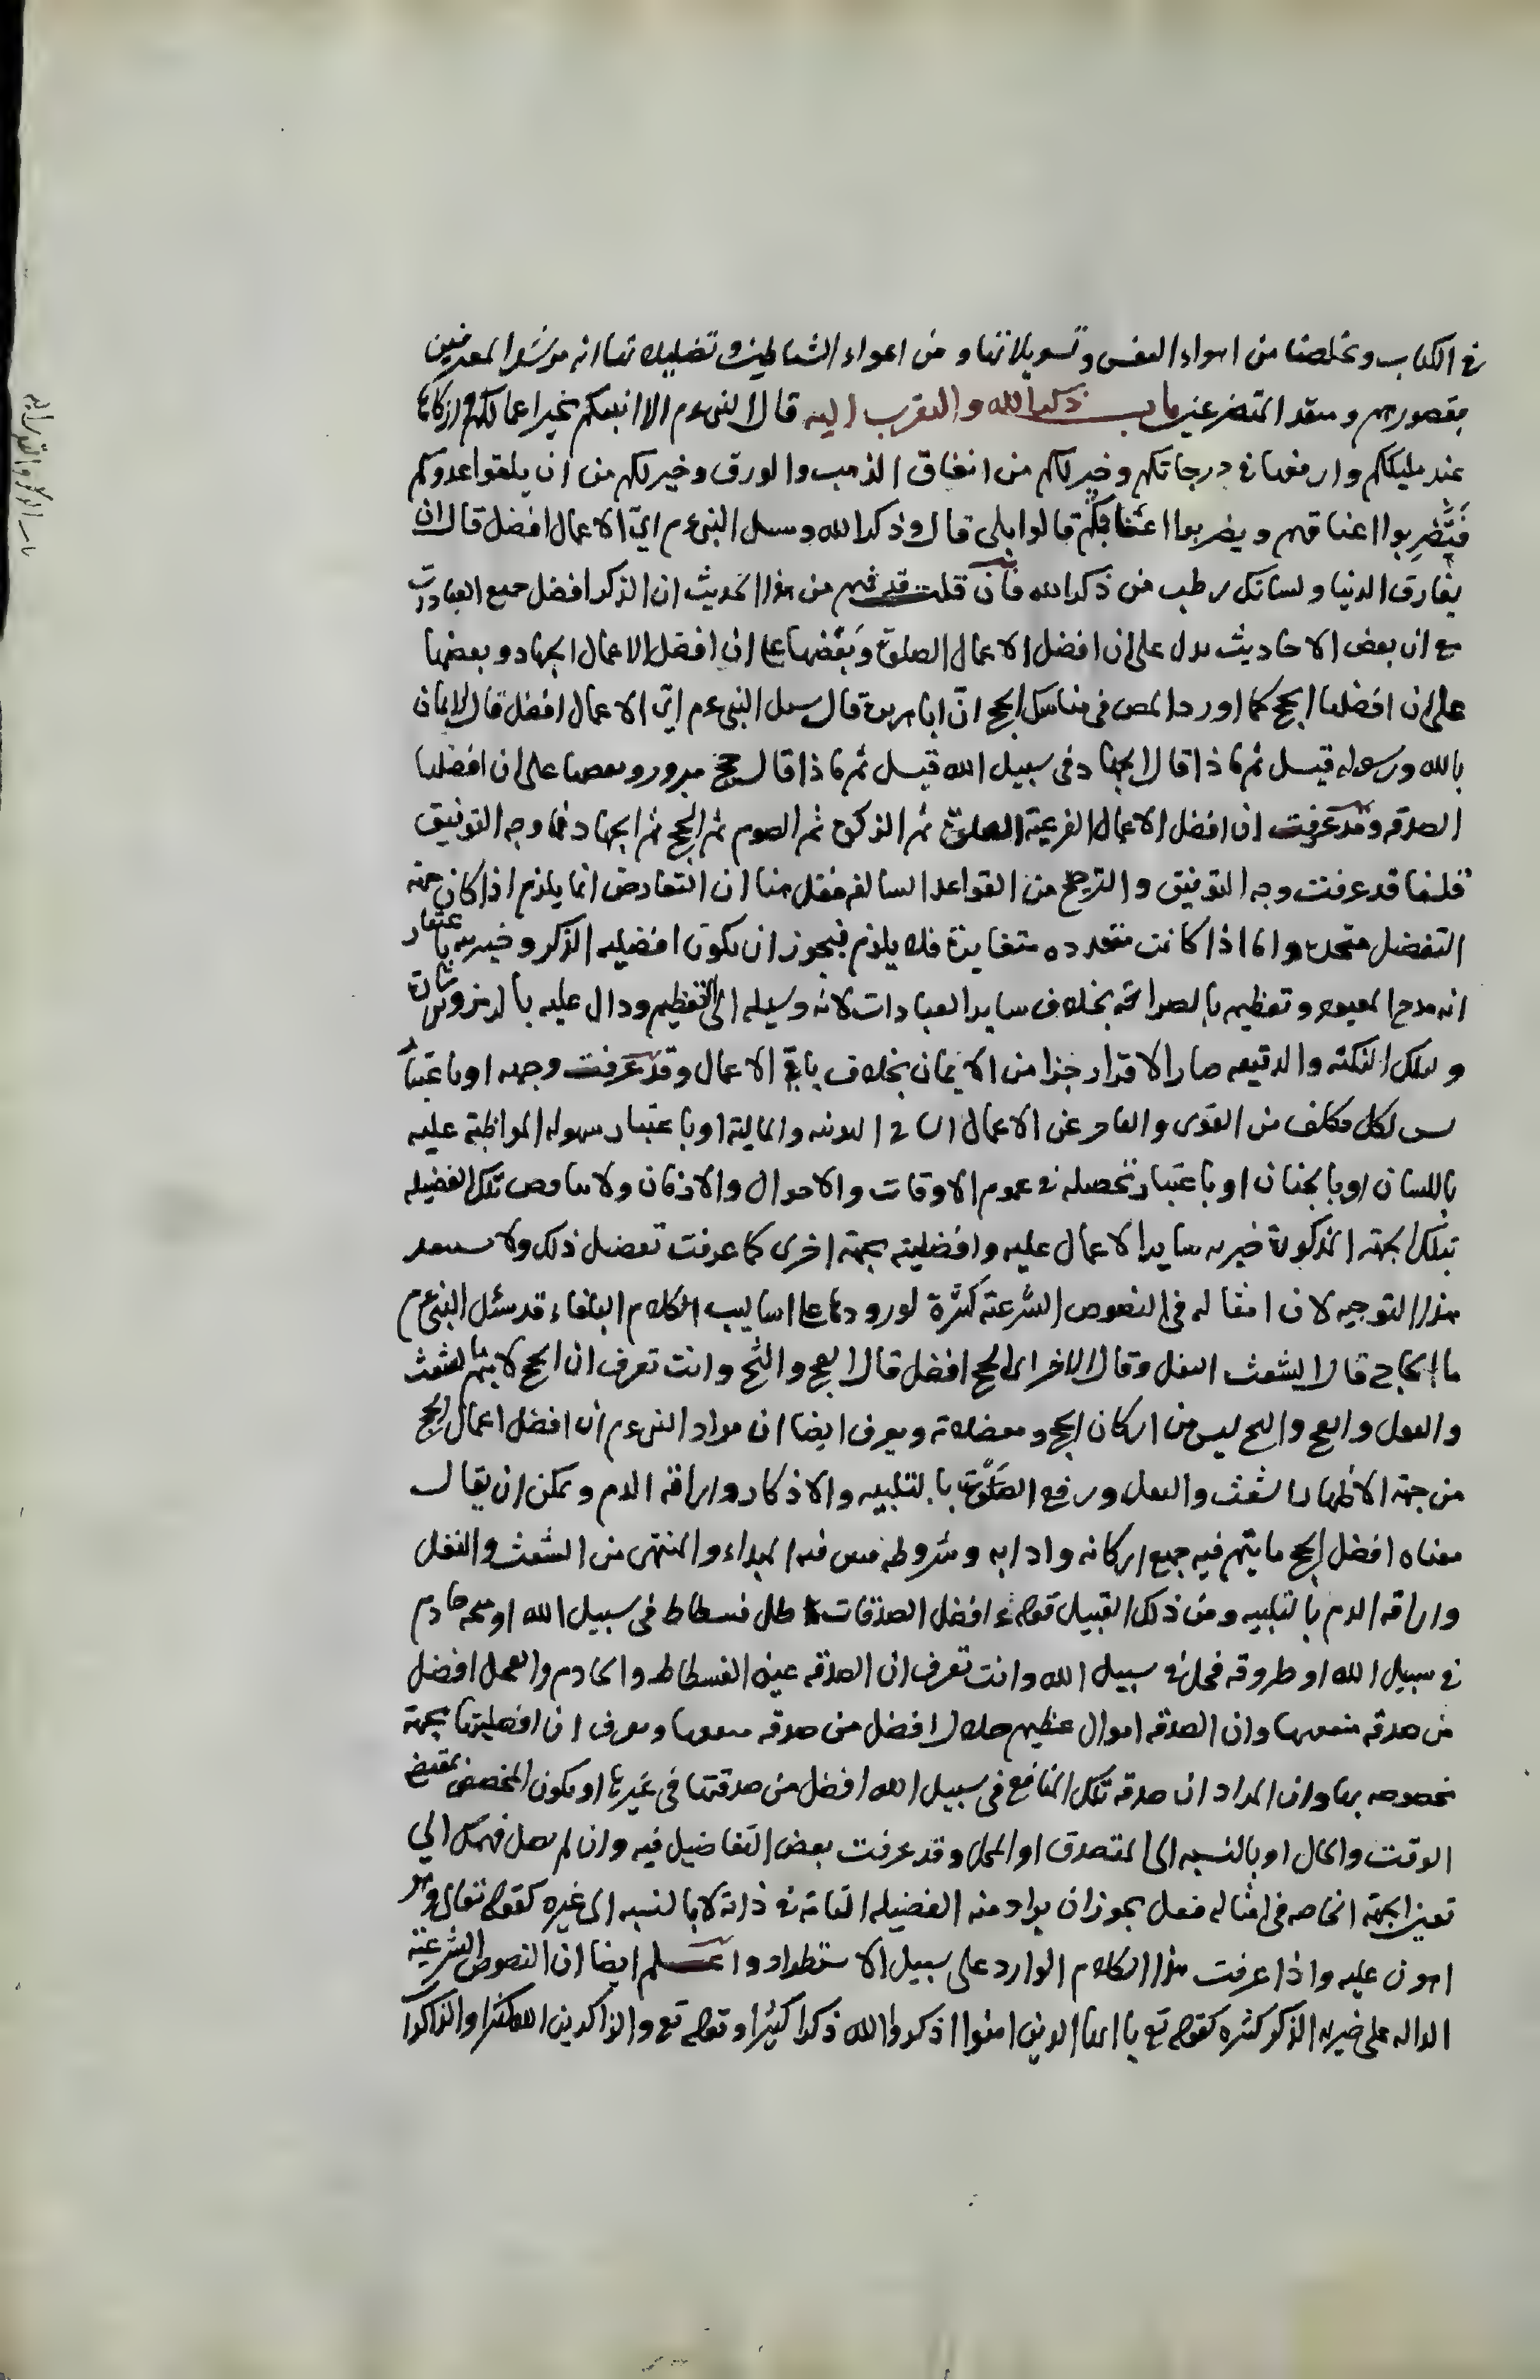 في الكتاب وتخلصنا من اهواء النفس وتسويلاتها و من اغواء الشياطين وتضليلاتها انه مرشد المعترفين
بقصورهم و منقذ المتضرعين باب ذكر الله والتقرب اليه قال النبي عم الا انبيكم بخير اعمالكم وازكاها
عند مليككم وارفعها في درجاتكم وخير لكم من انفاق الذهب والورق وخير لكم من ان يلقوا عدوكم
فتضربوا اعناقهم ويضربوا اعناقكم قالوا بلى قال ذكر الله وسئل النبي عم اي الاعمال افضل قال ان
يفارق الدنيا ولسانك رطب من ذكر الله فان قلت قد فهم من هذا الحديث ان الذكر افضل جميع العبادات
مع ان بعض الاحاديث يدل على ان افضل الاعمال الصلوة وبعضها على ان افضل الاعمال الجهاد وبعضها
على ان افضلها الحج كما اورد المص في مناسك الحج ان ابا هريرة قال سئل النبي عم اي الاعمال افضل قال الايمان
بالله ورسوله قيل ثم ماذا قال الجهاد في سبيل الله قيل ثم ماذا قال حج مبرور وبعضها على ان افضلها
الصدقه وقد عرفت ان افضل الاعمال الفرعية الصلوة ثم الزكوة ثم الصوم ثم الحج ثم الجهاد فما وجه التوفيق
قلنا قد عرفت وجه التوفيق والترجيح من القواعد السالفه فنقل هنا ان التعارض انما يلزم اذا كان جهة
التفضيل متحدة واما اذا كانت متعدده متغايرة فلا يلزم فيجوز ان يكون افضليه الذكر وخيريته باعتبار
انه مدح المعبود وتعظيم بالصراحة بخلاف ساير العبادات لانه وسيله الى التعظيم ودال عليه بالرمز والاشارة
ولتلك النكته والدقيقه صار الاقرار جزا من الايمان بخلاف باقي الاعمال وقد عرفت وجهه او باعتبار
لكل مكلف من القوى والعاجز عن الاعمال البدنيه والمالية او باعتبار سهوله المواظبة عليه
باللسان او بالجنان او باعتبار تحصله في عموم الاوقات والاحوال والازمان ولا تلك الفضيله
بتلك الجهة المذكورة خيريه ساير الاعمال عليه وافضليته بجهة اخرى كما عرفت تفضيل ذلك ولا يستبعد
هذا التوجيه لان امثاله في النصوص الشرعية كثيرة لورودها على اساليب الكلام البلغاء قد سئل النبي عم
ما الحاج قال الشعث التفل وقال الاخر اى الحج افضل قال العج والثج وانت تعرف ان الحج لا يتم بالشعث
والتفل والعج والثج ليس من اركان الحج ويعرف ايضا ان مراد النبي عم ان افضل اعمال الحج
من جهة الاظهار الشعث والتفل ورفع الصوت بالتلبيه والاذكار واراقة الدم ويمكن ان يقال
معناه افضل الحج ما يتم فيه جميع اركانه وادابه وشروطه المبداء والمنتهى من الشعث والتفل
واراقه الدم بالتلبيه ومن ذلك القبيل قوله ع افضل الصدقات ظل فسطاط في سبيل الله او منحه خادم
في سبيل الله او طروقه فحل في سبيل الله وانت تعرف ان الصدقه عين الفسطاط والخادم والفحل افضل
من صدقه منفعتها وان الصدقه اموال عظيم حلال افضل من صدقه منفعتها ويعرف ان افضليتها بجهة
مخصوصه بها وان المراد ان صدقه تلك المنافع في سبيل الله افضل من صدقتها في غيرها او يكون المخصص بمقتضى
الوقت والحال او بالنسبه الى المتصدق او المحل وقد عرفت بعض التفاضيل فيه وان لم يصل فهمك الي
تعين الجهة الخاصه في امثاله فنقل يجوز ان يراد منه الفضيله التامة في ذاته لا بالنسبه الى غيره كقوله تعالى وهو
اهون عليه واذا عرفت هذا الكلام الوارد على سبيل الاستطراد واعلم ايضا ان النصوص الشرعية
الداله على خيريه الذكر كثيره كقوله تع يا ايها الذين امنوا اذكروا الله ذكرا كثيرا وقوله تع والذاكرين الله كثيرا والذاكرا